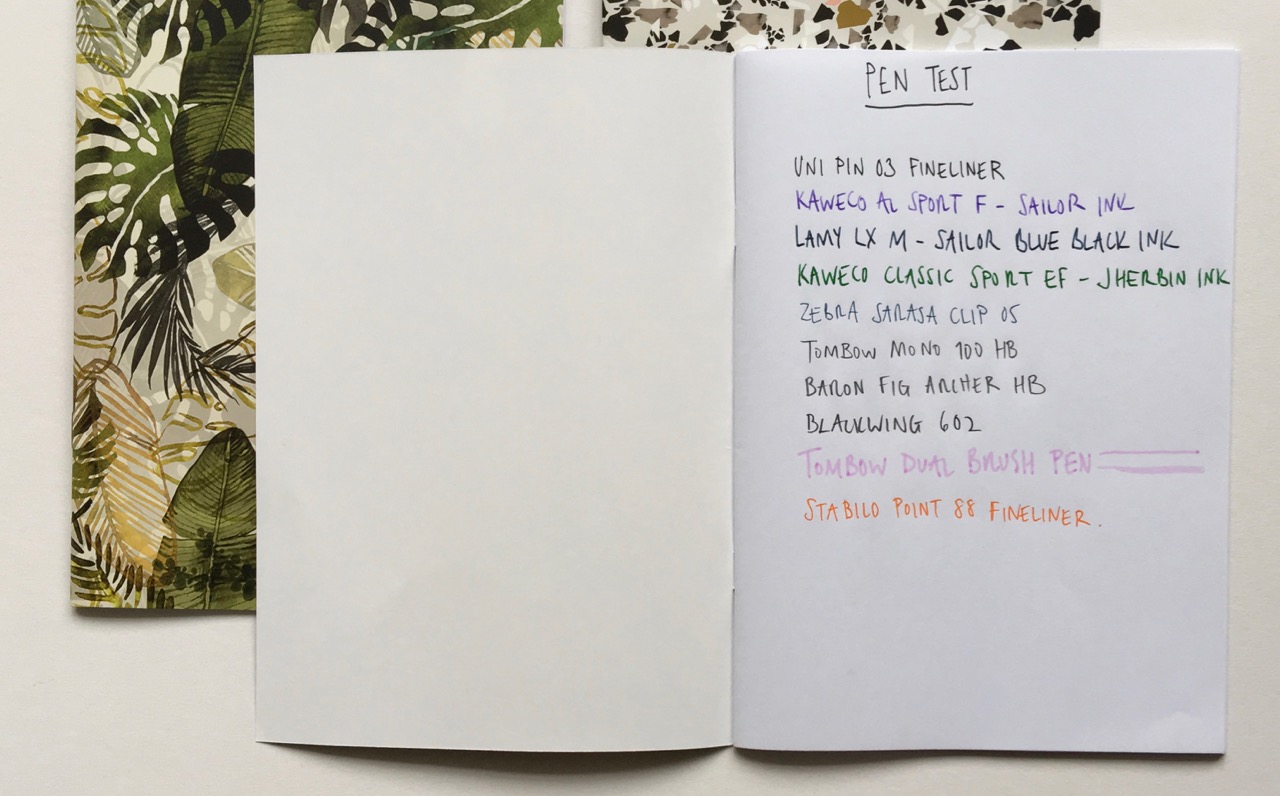 PEN TEST
UNI PIN 03 FINELINER
KAWECO AL SPORT F - SAILOR INK
LAMY LX M - SAILOR BLUE BLACK INK
KAWECO CLASSIC SPORT EF - JHERBIN INK
ZEBRA SARASA CLIP 05
TOMBOW MONO 100 HB
BARON FIG ARCHER HB
BLACKWING 602
TOMBOW DUAL BRUSH PEN
STABILO POINT 88 FINELINER.